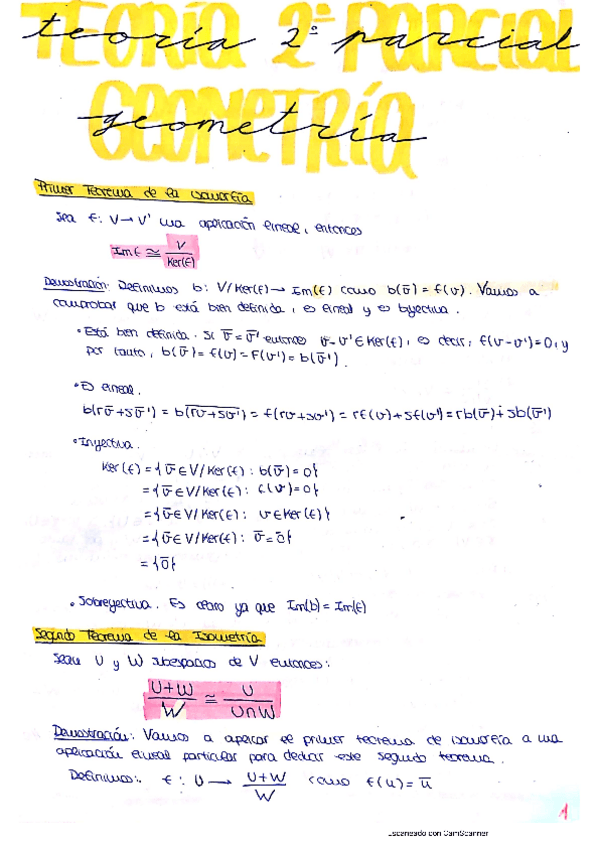 teoría 2º parcial
TEORÍA 2º PARCIAL
geometría
GEOMETRÍA
Primer Teorema de la isometría
Sea f: V → V' una aplicación lineal, entonces
Im f ≅ V / Ker(f)
Demostración: Definimos b: V/Ker(f) → Im(f) como b(v̄) = f(v). Vamos a
comprobar que b está bien definida, es lineal y es biyectiva.
• Está bien definida. Si v̄ = v̄' entonces v - v' ∈ Ker(f), es decir, f(v-v') = 0, y
por tanto, b(v̄) = f(v) = F(v') = b(v̄').
• Es lineal.
b(rv̄ + sv̄') = b(rv + sv') = f(rv + sv') = rf(v) + sf(v') = rb(v̄) + sb(v̄')
• Inyectiva.
Ker(f) = { v̄ ∈ V/Ker(f) : b(v̄) = 0 }
= { v̄ ∈ V/Ker(f) : f(v) = 0 }
= { v̄ ∈ V/Ker(f) : v ∈ Ker(f) }
= { v̄ ∈ V/Ker(f) : v̄ = 0̄ }
= { 0̄ }
• Sobreyectiva. Es claro ya que Im(b) = Im(f)
Segundo Teorema de la Isometría
Sean U y W subespacios de V entonces:
U+W / W ≅ U / U∩W
Demostración: Vamos a aplicar el primer teorema de isometría a una
aplicación lineal particular para deducir este segundo teorema.
Definimos: f: U → U+W / W como f(u) = ū
1
Escaneado con CamScanner